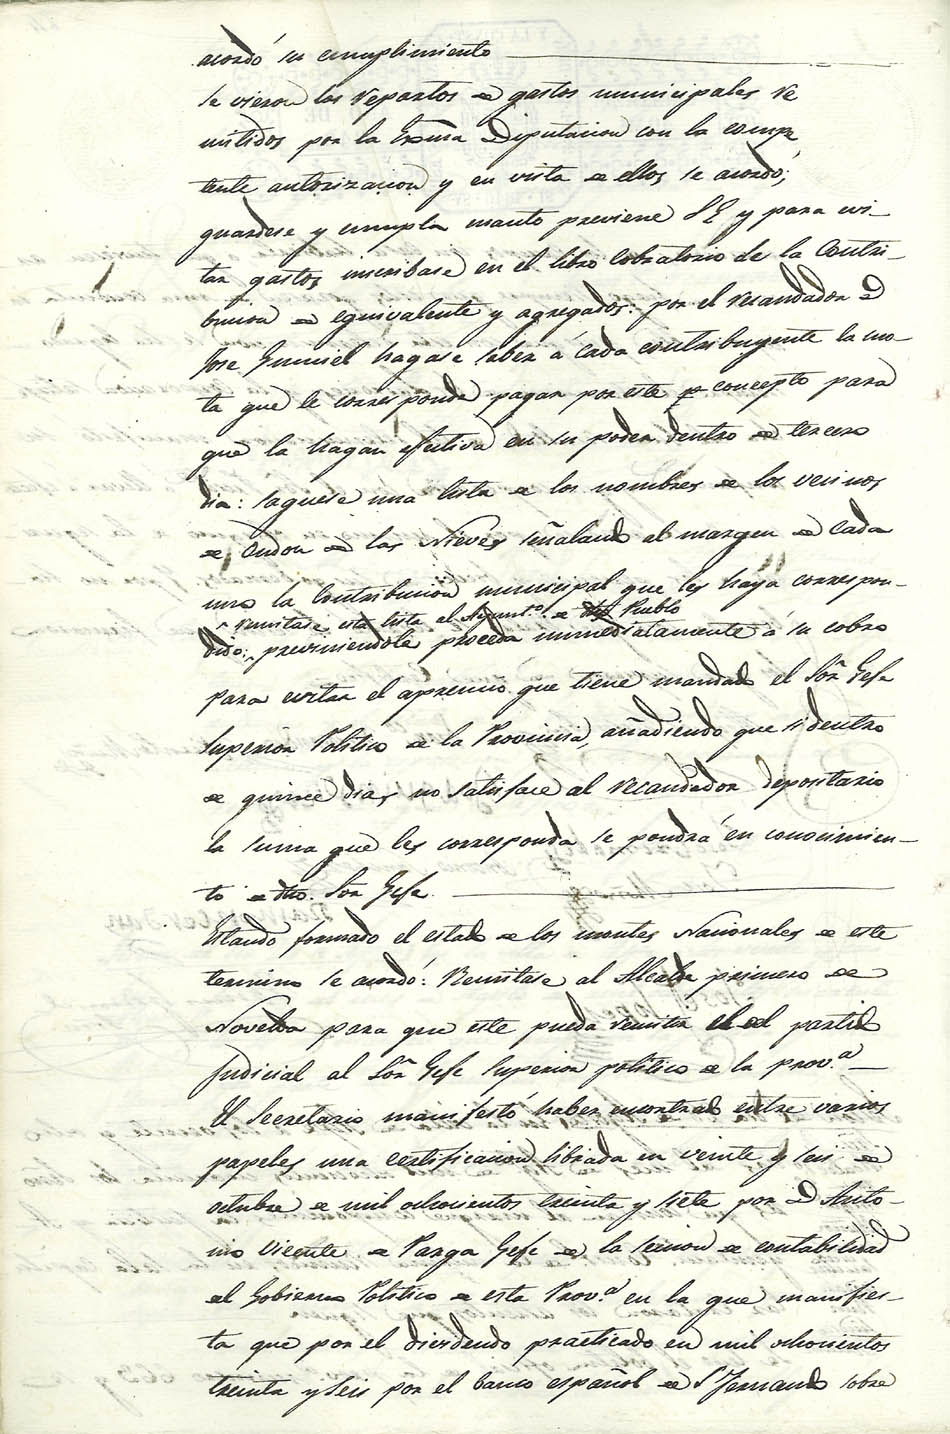 acordó su cumplimiento
Se vieron los repartos de gastos municipales re
mitidos por la Exma Diputacion con la compe
tente autorizacion y en vista de ellos se acordó;
guardese y cumpla cuanto previene S E y para evi-
tar gastos inscribase en el libro cobratorio de la Contri-
bucion de equivalente y agregados: por el recaudador D
Jose Gumiel hagase saber á cada contribuyente la cuo-
ta que le corresponde pagar por este concepto para
que la hagan efectiva en su poder dentro de tercero
dia: saquese una lista de los nombres de los vecinos
de Ondon de las Nieves señalando al margen de cada
uno la Contribucion municipal que les haya correspon-
remitase esta lista al Ayunt.o de Pueblo
dido; previniendole proceda immediatamente á su cobro
para evitar el apremio que tiene mandado el Sor Gefe
Superior Politico de la Provincia, añadiendo que si dentro
de quince dias no satisface al recaudador depositario
la suma que les corresponda se pondrá en conocimien-
to de dho. Sor Gefe
Estando formado el estado de los montes Nacionales de este
termino se acordó: Remitase al Alcalde primero de
Novelda para que este pueda remitir el del partido
Judicial al Sor Gefe Superior politico de la prov.a
El Secretario manifestó haber encontrado entre varios
papeles una certificacion librada en veinte y seis de
octubre de mil ochocientos treinta y siete por D Anto-
nio Vicente de Parga Gefe de la seccion de contabilidad
del Gobierno Politico de esta Prov.a en la que manifies-
ta que por el dividendo practicado en mil ochocientos
treinta y seis por el banco español de Sn Fernando sobre